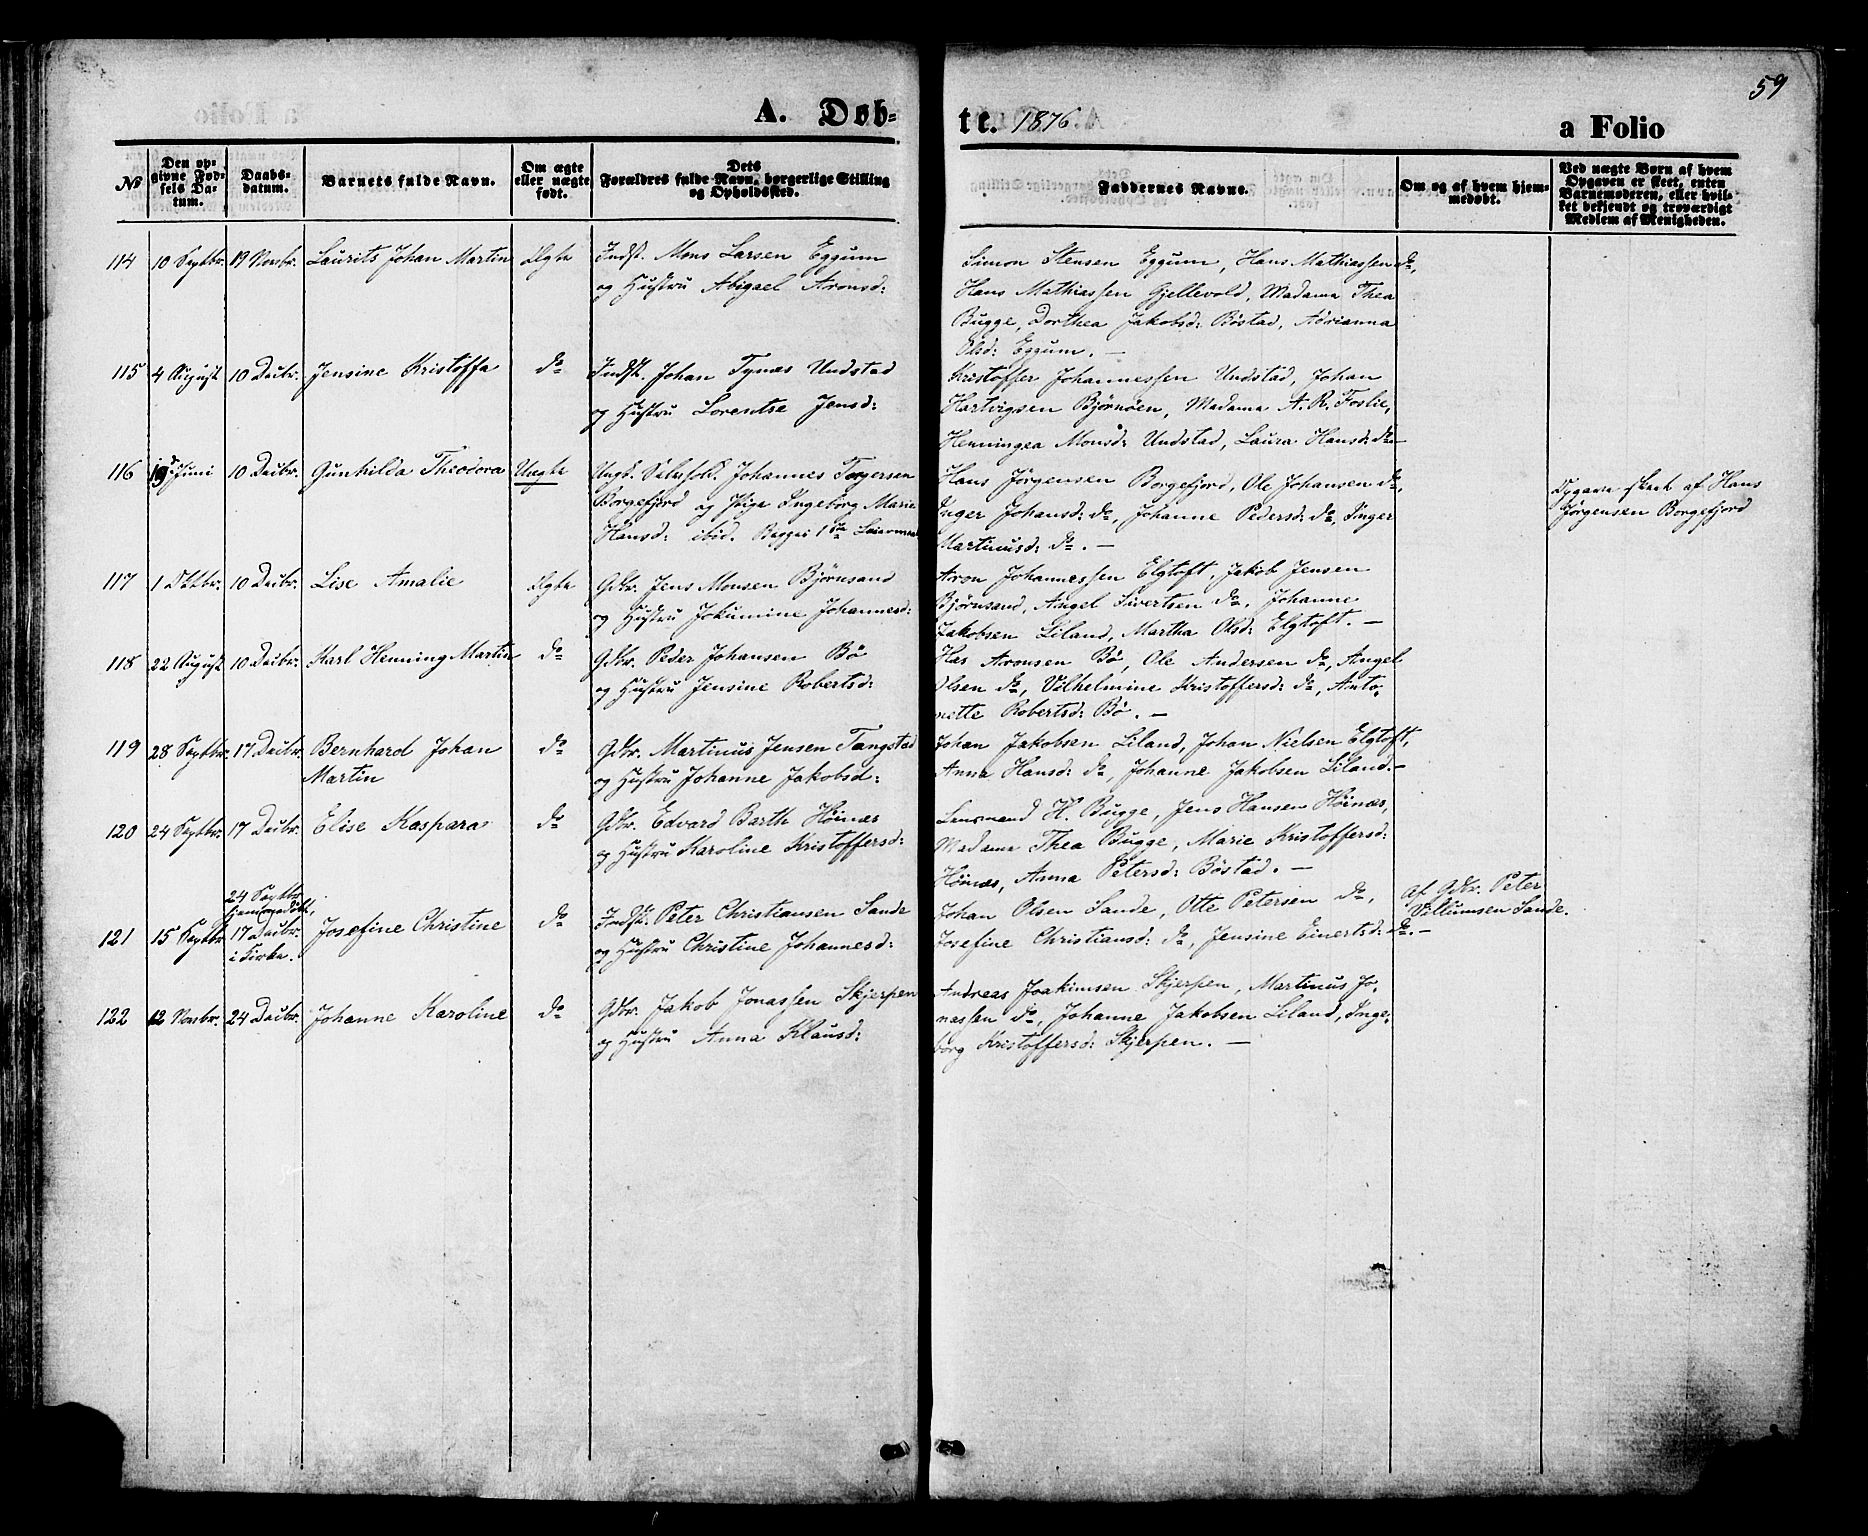 59
A. Døb-
te. 1876.
a Folio
№
Den op-
givne Fød-
sels Da-
tum.
Daabs-
datum.
Barnets fulde Navn.
Om ægte
eller uægte
født.
Dets
Forældres fulde Navn, borgerlige Stilling
og Opholdssted.
Faddernes Navne.
Om og af hvem hjem-
medøbt.
Ved uægte Børn af hvem
Opgaven er skeet, enten
Barnemoderen, eller hvil-
ket bekjendt og troværdigt
Medlem af Menigheden.
114 10 Septbr. 19 Novbr. Laurits Johan Martin Ægte Indst. Mons Larsen Eggum
og Hustru Abigael Aronsd:
Simon Stensen Eggum, Hans Mathiassen do,
Hans Mathiassen Gjellevold, Madame Thea
Bugge, Dorthea Jakobsd: Bøstad, Adrianna
Olsd: Eggum. —
115 4 August 10 Decbr. Jensine Kristoffa do Indst. Johan Tynæs Undstad
og Hustru Lorentse Jensd:
Kristoffer Johannessen Undstad, Johan
Hartvigsen Bjørnøen, Madame A. R. Foslie,
Henningea Monsd: Undstad, Laura Hansd: do —
116 19 Juni 10 Decbr. Gunhilda Theodora Uægte Ungk. Johannes Torgersen
Borgefjord og Pige Ingeborg Marie
Hansd: ibid. Begges 1ste Leiermaal
Hans Jørgensen Borgefjord, Ole Johansen do,
Inger Johansd: do, Johanne Pedersd: do, Inger
Martinusd: do. —
Opgave skeet af Hans
Jørgensen Borgefjord
117 1 Oktbr. 10 Decbr. Lise Amalie Ægte Gdbr. Jens Monsen Bjørnsand
og Hustru Jokumine Johannesd:
Aron Johannessen Elgtoft, Jakob Jensen
Bjørnsand, Angel Sivertsen do, Johanne
Jakobsen Liland, Martha Olsd: Elgtoft. —
118 22 August 10 Decbr. Karl Henning Martin do Gdbr. Peder Johansen Bø
og Hustru Jensine Robertsd:
Has Aronsen Bø, Ole Andersen do, Angel
Olsen do, Vilhelmine Kristoffersd: do, Anto-
nette Robertsd: Bø. —
119 28 Septbr. 17 Decbr. Bernhard Johan
Martin do Gdbr. Martinus Jensen Tangstad
og Hustru Johanne Jakobsd:
Johan Jakobsen Liland, Johan Nielsen Elgtoft,
Anna Hansd: do, Johanne Jakobsen Liland. —
120 24 Septbr. 17 Decbr. Elise Kaspara do Gdbr. Edvard Barth Høinæs
og Hustru Karoline Kristoffersd:
Lensmand H. Bugge, Jens Hansen Høinæs,
Madame Thea Bugge, Marie Kristoffersd:
Høinæs, Anna Petersd: Bøstad. —
121 15 Septbr. 24 Septbr.
hjemmedøbt,
17 Decbr.
i Kirke. Josefine Christine do Indst. Peter Christiansen Sande
og Hustru Christine Johannesd:
Johan Olsen Sande, Otte Petersen do,
Josefine Christiansd: do, Jensine Einertsd: do. —
af Gdbr. Peter
Villumsen Sande.
122 12 Novbr. 24 Decbr. Johanne Karoline do Gdbr. Jakob Jonassen Skjerpen
og Hustru Anna Klausd:
Andreas Joakimsen Skjerpen, Martinus Jo-
nassen do, Johanne Jakobsen Liland, Inge-
borg Kristoffersd: Skjerpen. —